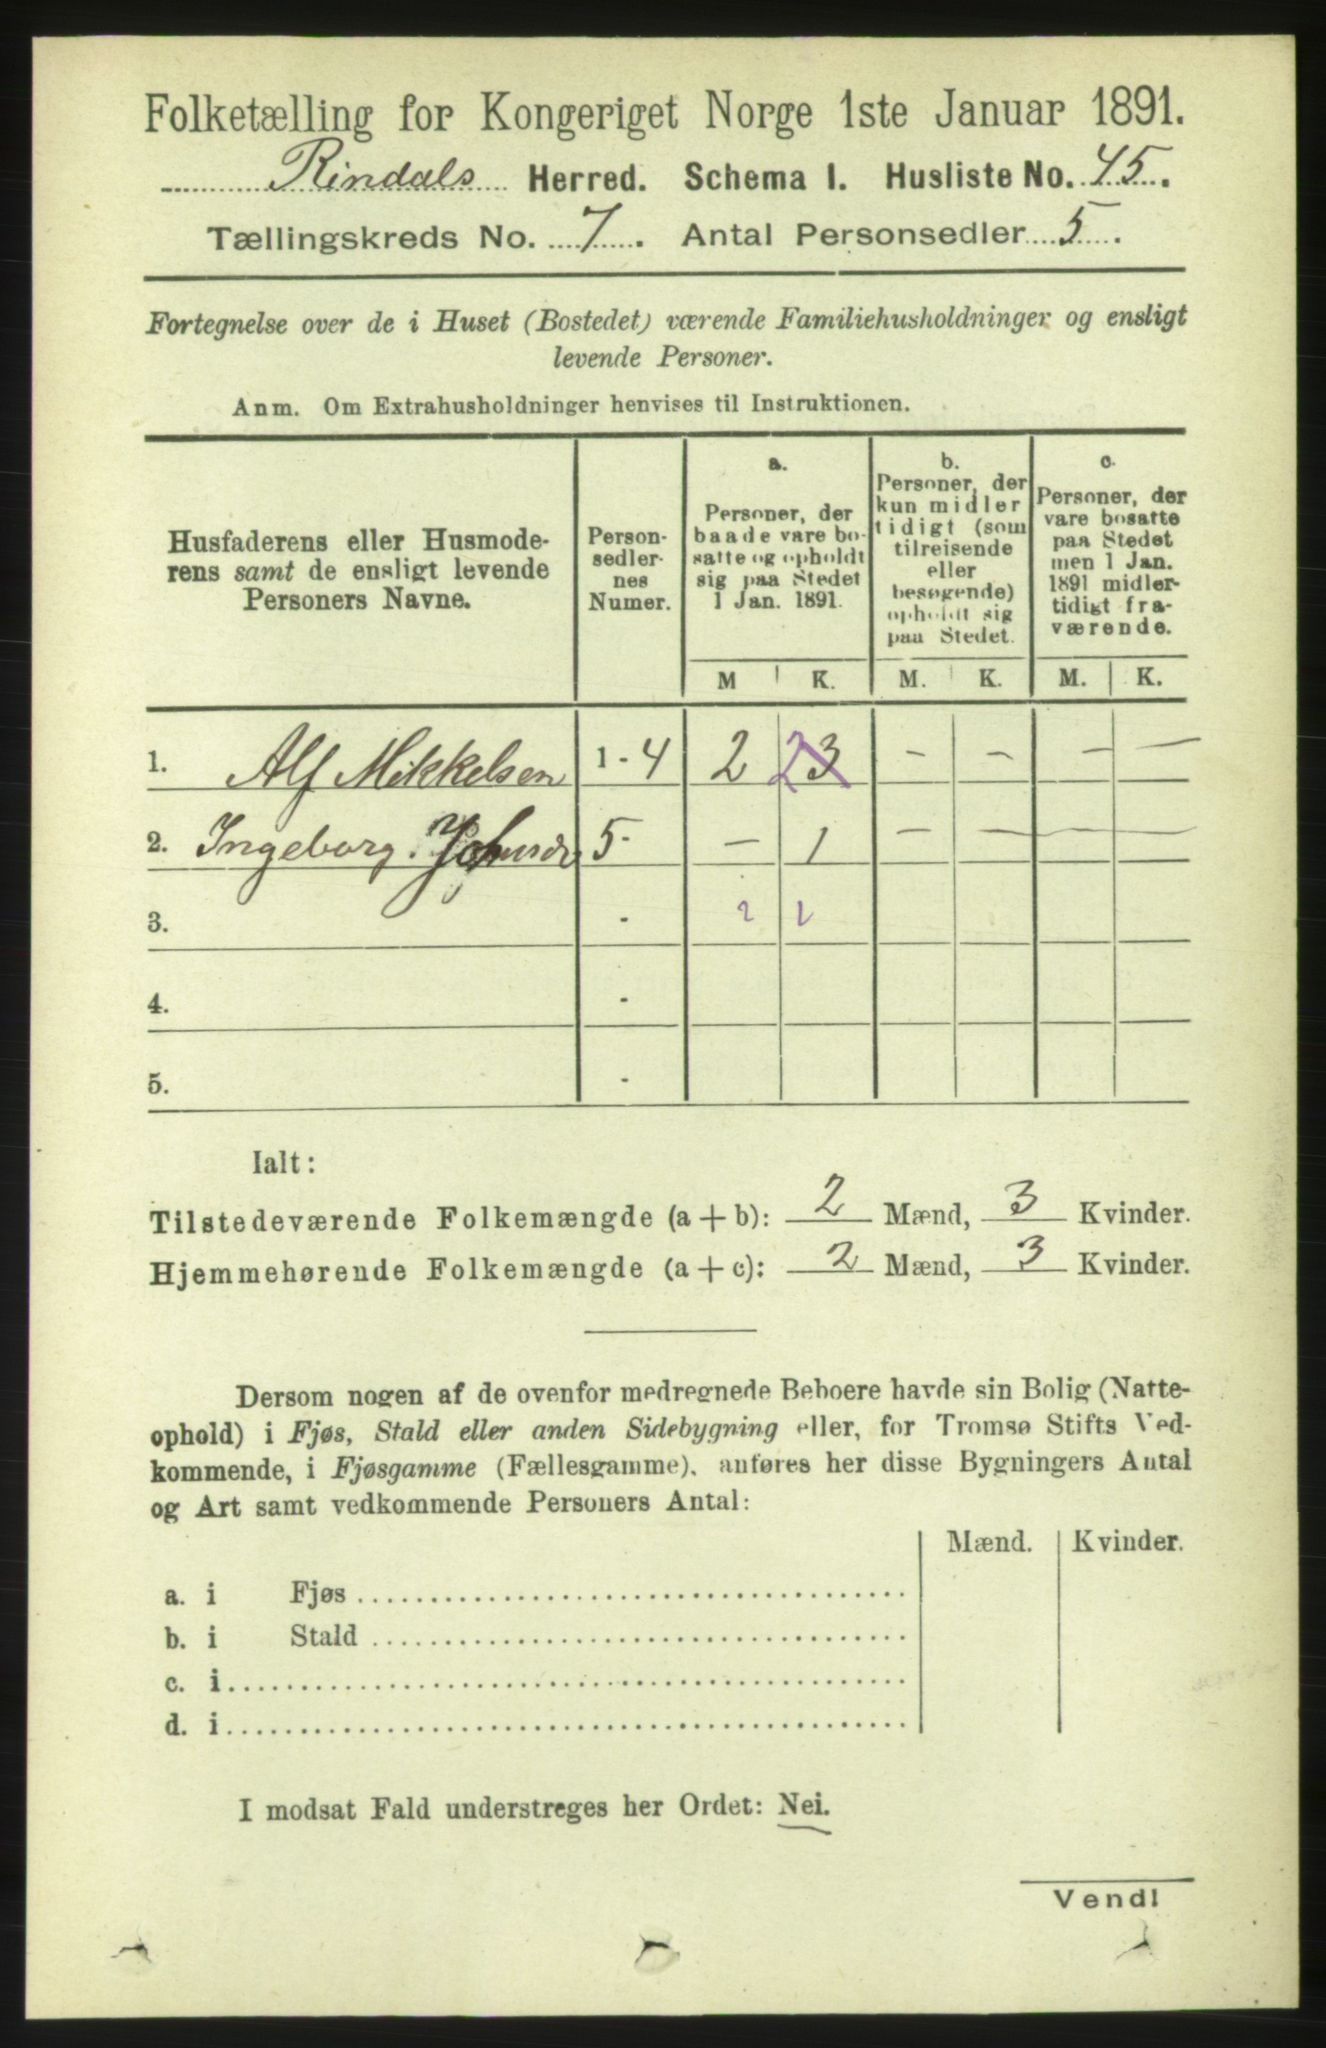 Folketælling for Kongeriget Norge 1ste Januar 1891.
Rindals Herred. Schema I. Husliste No. 45.
Tællingskreds No. 7. Antal Personsedler 5.
Fortegnelse over de i Huset (Bostedet) værende Familiehusholdninger og ensligt
levende Personer.
Anm. Om Extrahusholdninger henvises til Instruktionen.
Husfaderens eller Husmode-
rens samt de ensligt levende
Personers Navne.
Person-
sedler-
nes
Numer.
a.
Personer, der
baade vare bo-
satte og opholdt
sig paa Stedet
1 Jan. 1891.
b.
Personer, der
kun midler
tidigt (som
tilreisende
eller
besøgende)
opholdt sig
paa Stedet.
c.
Personer, der
vare bosatte
paa Stedet
men 1 Jan.
1891 midler-
tidigt fra-
værende.
M K. M. K. M. K.
1. Alf Mikkelsen 1 - 4 2 2 3 - - - -
2. Ingeborg 5 - - 1 - - - -
3. - 2 2
4. -
5. -
Ialt:
Tilstedeværende Folkemængde (a + b): 2 Mænd, 3 Kvinder.
Hjemmehørende Folkemængde (a + c): 2 Mænd, 3 Kvinder.
Dersom nogen af de ovenfor medregnede Beboere havde sin Bolig (Natte-
ophold) i Fjøs, Stald eller anden Sidebygning eller, for Tromsø Stifts Ved-
kommende, i Fjøsgamme (Fællesgamme), anføres her disse Bygningers Antal
og Art samt vedkommende Personers Antal:
Mænd. Kvinder.
a. i Fjøs
b. i Stald
c. i
d. i
I modsat Fald understreges her Ordet: Nei.
Vend!